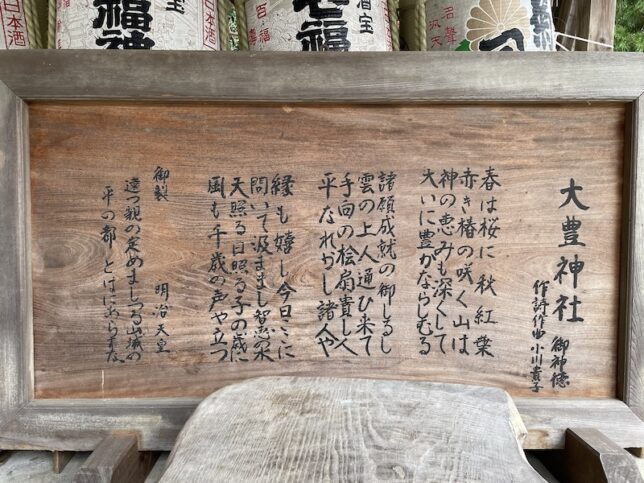 大豊神社
御神徳
作詩作曲 小川貴子
春は桜に 秋 紅葉
赤き椿の咲く山は
神の恵みも深くして
大いに豊かならしむる
諸願成就の御しるし
雲の上人通ひ来て
手向の桧扇貴し人
平なれかし諸人や
縁も嬉し今日ここに
問いて汲ままし智恵の水
天照る日照る子の歳に
国も千歳の声や立つ
御製
明治天皇
遠つ親の定めましつる山城の
平の都
日本酒
福神
七福
酒宝
百福
名聲
日本酒